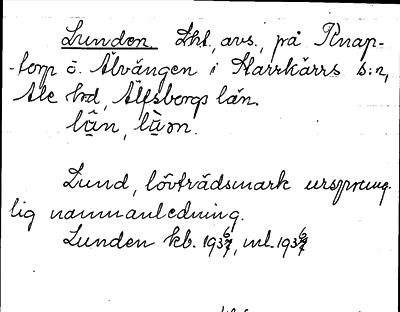 Lunden. Tkt., avs., på Knap-
-torp ö. Älvängen i Starrkärrs s:n,
Ale hd, Älfsborgs län.
Lund, lövträdsmark ursprung-
lig namnanledning.
Lunden kb. 193 , ml. 193